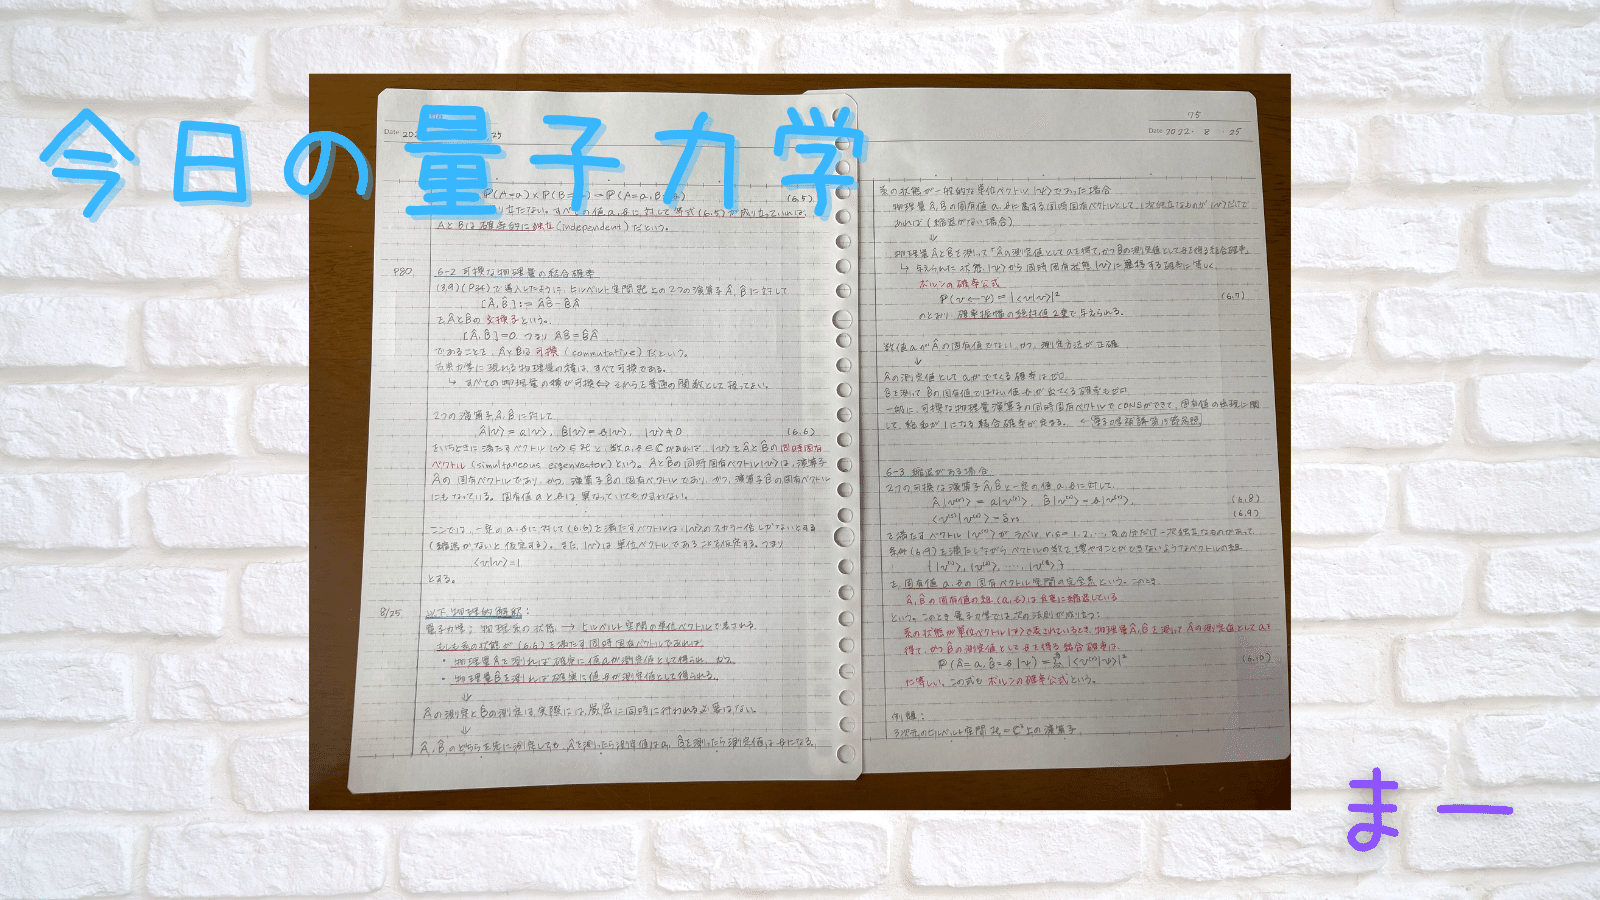 今日の量子力学
75
Date 2022. 8 . 25
(6.5)
AとBは確率的に独立(independent)だという。
P80 6-2 可換な物理量の結合確率
(3.9)(P34)で導入したように、ヒルベルト空間 上の2つの演算子Â,B̂に対して
[Â,B̂]:=ÂB̂-B̂Â
をÂとB̂の交換子という。
[Â,B̂]=0 つまり ÂB̂=B̂Â
であることを、ÂとB̂は可換(commutative)だという。
古典力学に現れる物理量の積は、すべて可換である。
↳ すべての物理量の積が可換⇔それらを普通の関数として扱ってよい。
2つの演算子Â,B̂に対して
Â|v〉=a|v〉, B̂|v〉=b|v〉, |v〉≠0 (6.6)
ベクトル(simultaneous eigenvector)という。ÂとB̂の同時固有ベクトル|v〉は、演算子
Âの固有ベクトルであり、かつ、演算子B̂の固有ベクトル
にもなっている。固有値aとbは異なっていてもかまわない。
ここでは、一定のa,bに対して(6.6)を満たすベクトルは、|v〉のスカラー倍しかないとする
(縮退がないと仮定する)。また、|v〉は単位ベクトルであることを仮定する。つまり
〈v|v〉=1
とする。
8/25 以下 物理的解釈:
量子力学: 物理系の状態 → ヒルベルト空間の単位ベクトルで表される。
もしも系の状態が(6.6)を満たす同時固有ベクトルであれば、
・物理量Âを測れば確実に値aが測定値として得られ、かつ、
・物理量B̂を測れば確実に値bが測定値として得られる。
↓
Âの測定とB̂の測定は、実際には、厳密に同時に行われる必要はない。
↓
Â,B̂のどちらを先に測定しても、Âを測ったら測定値はa、B̂を測ったら測定値はbになる。
系の状態が一般的な単位ベクトル|ψ〉であった場合
物理量Â,B̂の固有値a,bに属する同時固有ベクトルとして、1次独立なものが|v〉だけで
あれば(縮退がない場合)
↓
物理量ÂとB̂を測って「Âの測定値としてaを得て、かつB̂の測定値としてbを得る結合確率」
↳ 与えられた状態|ψ〉から同時固有状態|v〉に遷移する確率に等しく、
ボルンの確率公式
P(v←ψ)=|〈v|ψ〉|² (6.7)
のとおり、確率振幅の絶対値2乗で与えられる。
数値aがÂの固有値でない、かつ、測定方法が正確
↓
Âの測定値としてaがでてくる確率はゼロ
B̂を測ってB̂の固有値ではない値bが出てくる確率もゼロ
一般に、可換な物理量演算子の同時固有ベクトルでCONSができて、固有値の出現に関
して、総和が1になる結合確率が定まる。
6-3 縮退がある場合
2つの可換な演算子Â,B̂と一定の値a,bに対して、
Â|v⁽ʳ⁾〉=a|v⁽ʳ⁾〉, B̂|v⁽ʳ⁾〉=b|v⁽ʳ⁾〉, (6.8)
(6.9)
条件(6.9)を満たしながらベクトルの数を増やすことができないようなベクトルの組
を、固有値a,bの固有ベクトル空間の完全系という。このとき、
Â,B̂の固有値の組(a,b)は 重に縮退している
という。このとき量子力学では次の法則が成り立つ:
系の状態が単位ベクトル|ψ〉で表されているとき、物理量Â,B̂を測ってÂの測定値としてaを
得て、かつB̂の測定値としてbを得る結合確率は、
(6.10)
に等しい。この式もボルンの確率公式という。
例題:
まー